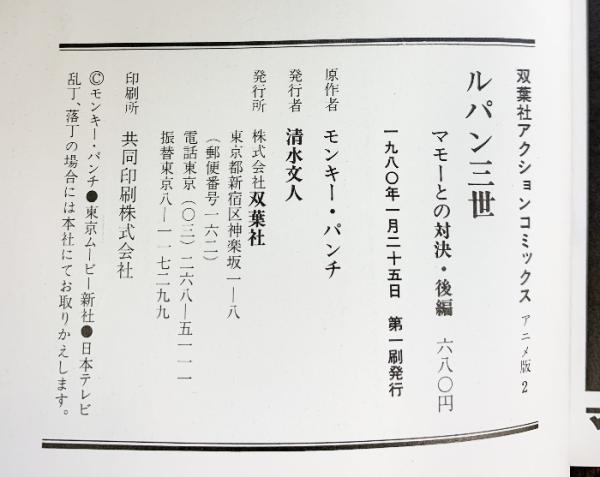 双葉社アクションコミックス アニメ版 2
ルパン三世
マモーとの対決・後編 六八〇円
一九八〇年一月二十五日 第一刷発行
原作者 モンキー・パンチ
発行者 清水文人
発行所 株式会社双葉社
東京都新宿区神楽坂一―八
(郵便番号一六二)
電話東京(〇三)二六八―五一一一
振替東京八―一一七二九九
印刷所 共同印刷株式会社
©モンキー・パンチ●東京ムービー新社●日本テレビ
乱丁、落丁の場合には本社にてお取りかえします。